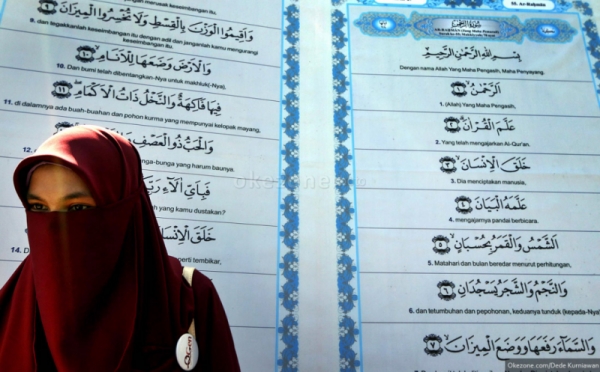 وَأَقِيمُوا الْوَزْنَ بِالْقِسْطِ وَلَا تُخْسِرُوا الْمِيزَانَ
9. dan tegakkanlah keseimbangan itu dengan adil dan janganlah kamu mengurangi
keseimbangan itu.
وَالْأَرْضَ وَضَعَهَا لِلْأَنَامِ ١٠
10. Dan bumi telah dibentangkan-Nya untuk makhluk(-Nya),
فِيهَا فَاكِهَةٌ وَالنَّخْلُ ذَاتُ الْأَكْمَامِ ١١
11. di dalamnya ada buah-buahan dan pohon kurma yang mempunyai kelopak mayang,
وَالْحَبُّ ذُو الْعَصْفِ
12.
nga-bunga yang harum baunya.
فَبِأَيِّ آلَاءِ
yang kamu dustakan?
خَلَقَ الْإِنْسَانَ
14.
perti tembikar,
سُورَةُ الرَّحْمٰن
بِسْمِ اللَّهِ الرَّحْمَٰنِ الرَّحِيمِ
Dengan nama Allah Yang Maha Pengasih, Maha Penyayang.
الرَّحْمَٰنُ ١
1. (Allah) Yang Maha Pengasih,
عَلَّمَ الْقُرْآنَ ٢
2. Yang telah mengajarkan Al-Qur'an.
خَلَقَ الْإِنْسَانَ ٣
3. Dia menciptakan manusia,
عَلَّمَهُ الْبَيَانَ ٤
4. mengajarnya pandai berbicara.
الشَّمْسُ وَالْقَمَرُ بِحُسْبَانٍ ٥
5. Matahari dan bulan beredar menurut perhitungan,
وَالنَّجْمُ وَالشَّجَرُ يَسْجُدَانِ ٦
6. dan tetumbuhan dan pepohonan, keduanya tunduk (kepada-Nya)
وَالسَّمَاءَ رَفَعَهَا وَوَضَعَ الْمِيزَانَ ٧
okezone
Okezone.com/Dede Kurniawan